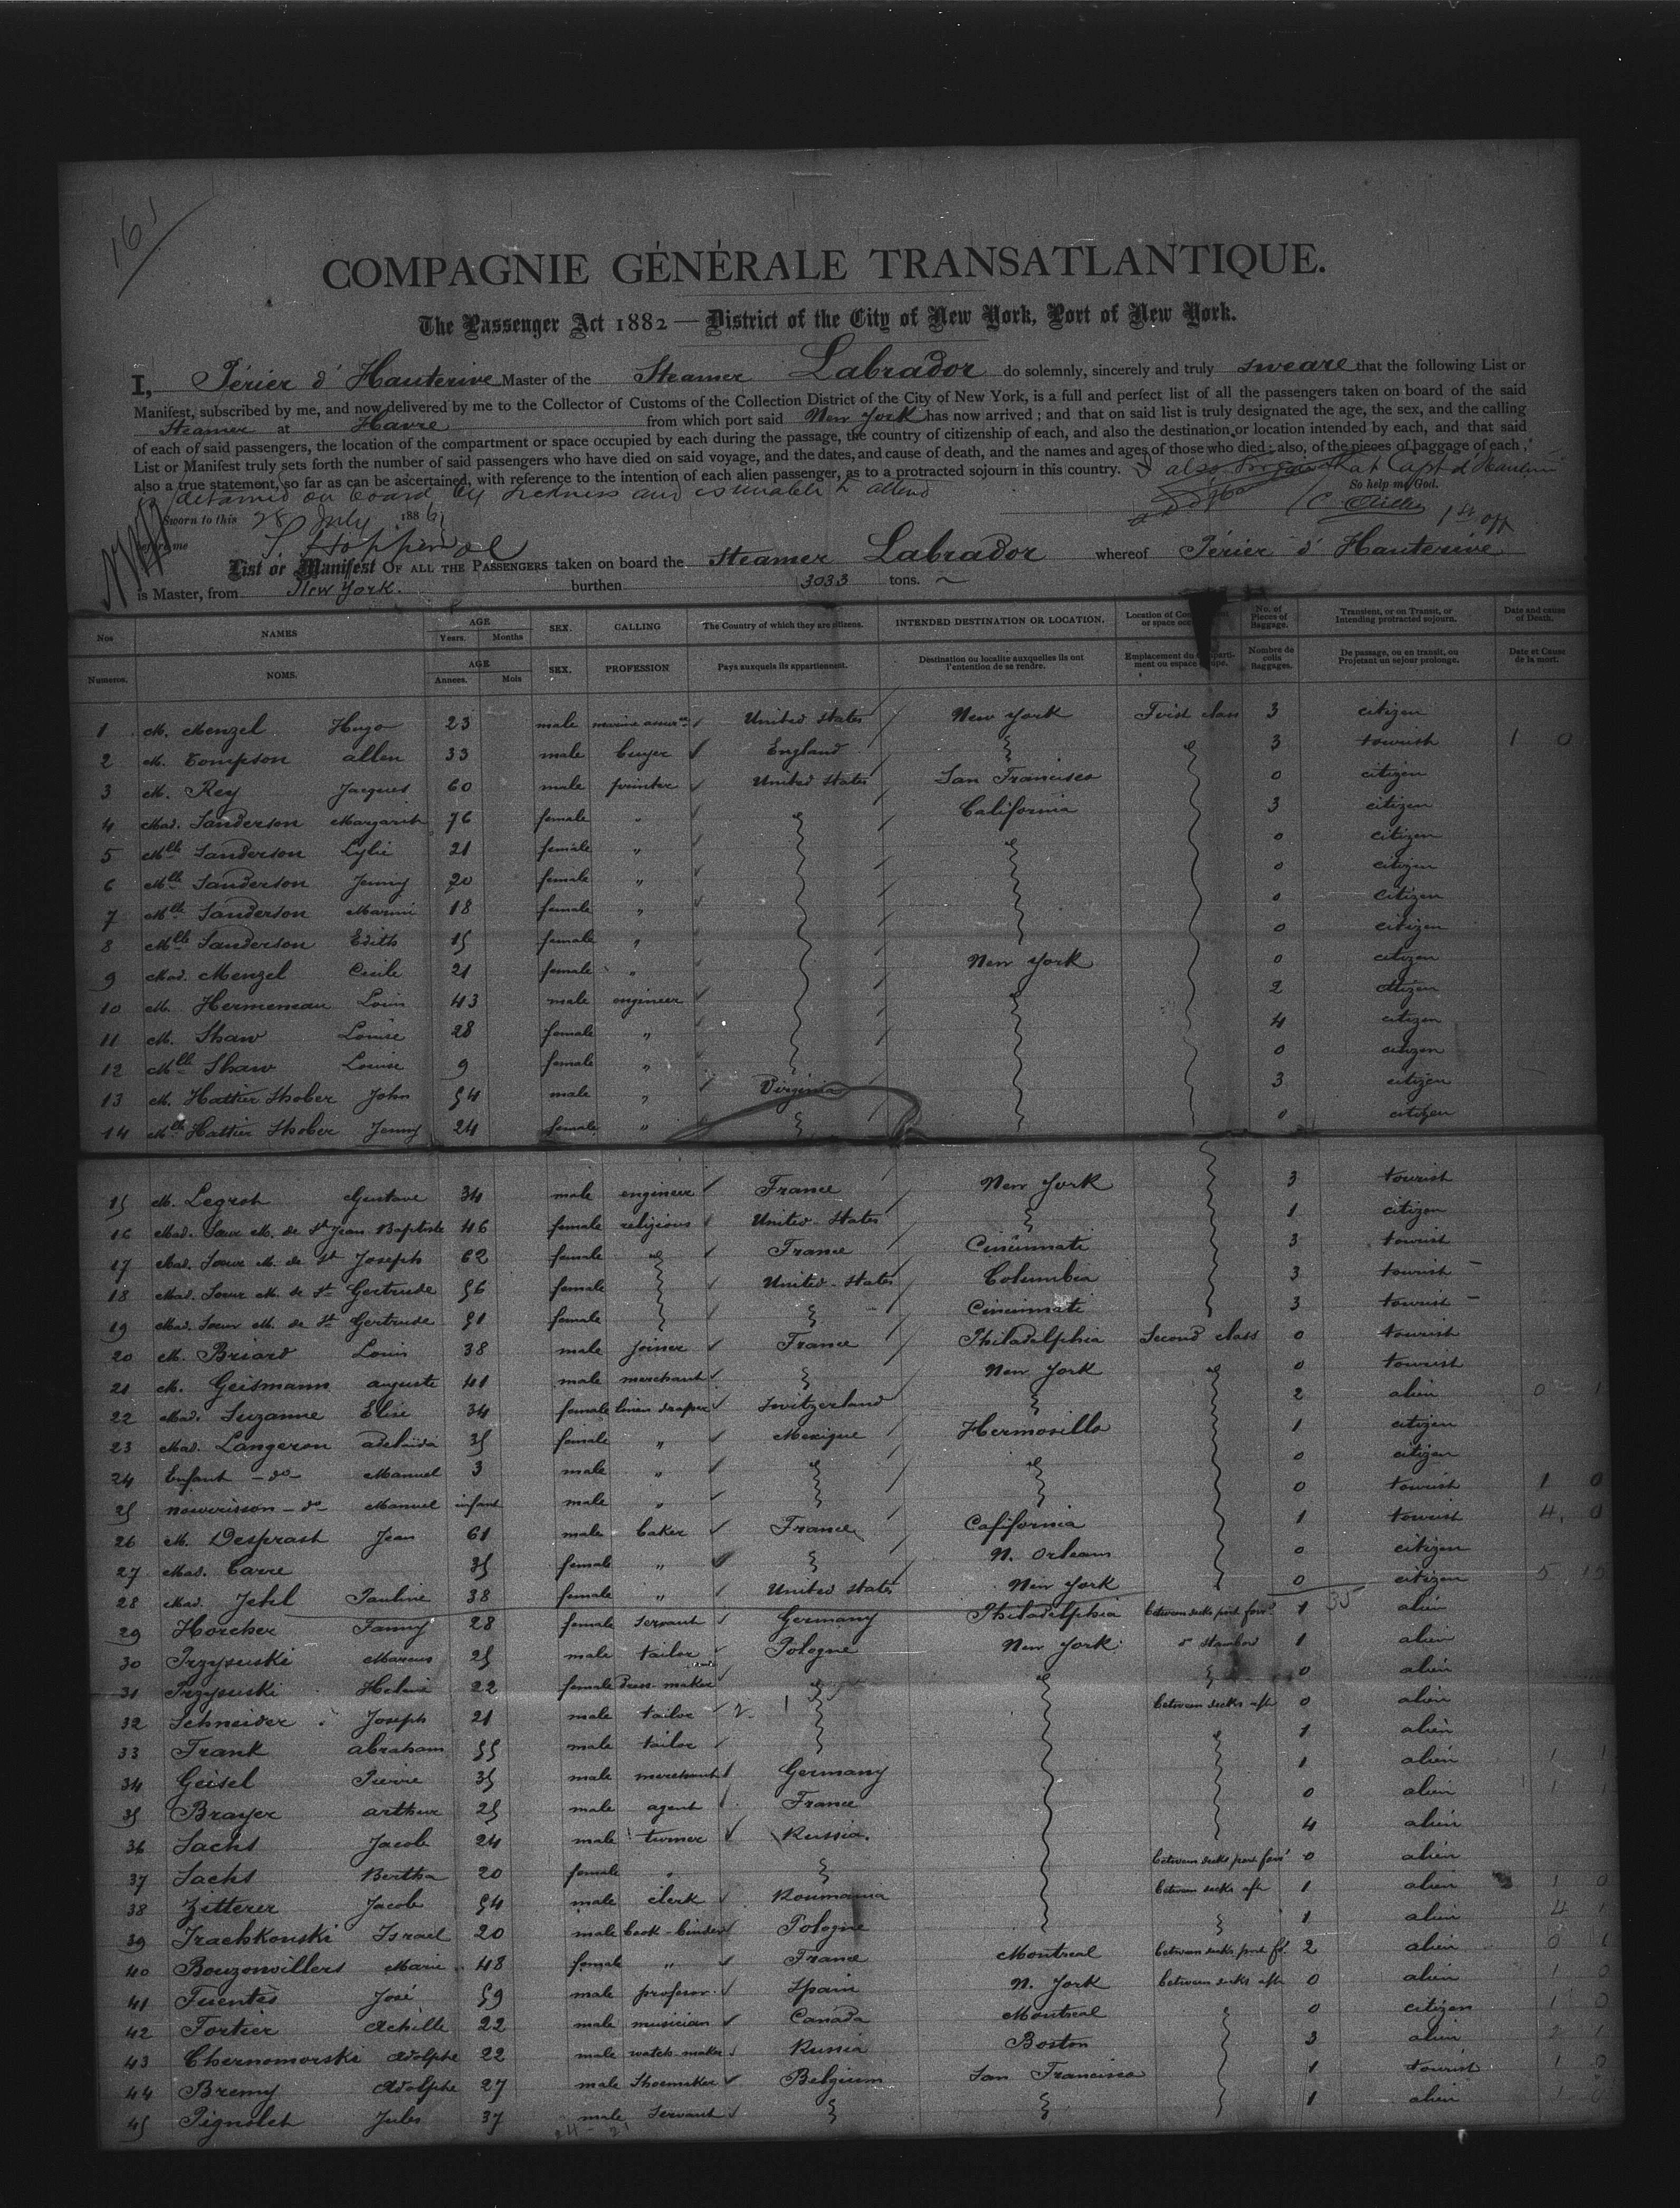 161
COMPAGNIE GÉNÉRALE TRANSATLANTIQUE.
The Passenger Act 1882 — District of the City of New York, Port of New York.
I, Périer d' Hauterive Master of the Steamer Labrador do solemnly, sincerely and truly sweare that the following List or
Manifest, subscribed by me, and now delivered by me to the Collector of Customs of the Collection District of the City of New York, is a full and perfect list of all the passengers taken on board of the said
Steamer at Havre from which port said New York has now arrived ; and that on said list is truly designated the age, the sex, and the calling
of each of said passengers, the location of the compartment or space occupied by each during the passage, the country of citizenship of each, and also the destination or location intended by each, and that said
List or Manifest truly sets forth the number of said passengers who have died on said voyage, and the dates, and cause of death, and the names and ages of those who died ; also, of the pieces of baggage of each ;
also a true statement, so far as can be ascertained, with reference to the intention of each alien passenger, as to a protracted sojourn in this country. I also that Capt d'Hauterive
is detained on board by sickness and is unable to attend So help me God.
Sworn to this 28 July 1886
before me 1st off
List or Manifest OF ALL THE PASSENGERS taken on board the Steamer Labrador whereof Périer d' Hauterive
is Master, from New York. burthen 3033 tons.
Nos NAMES AGE Years. Months SEX. CALLING The Country of which they are citizens. INTENDED DESTINATION OR LOCATION. Location of or space No. of Pieces of Baggage. Transient, or on Transit, or Intending protracted sojourn. Date and cause of Death.
Numeros. NOMS. AGE Annees. Mois SEX. PROFESSION Pays auxquels ils appartiennent. Destination ou localité auxquelles ils ont l'entention de se rendre. Emplacement du ment ou espace Nombre de colis Baggages. De passage, ou en transit, ou Projetant un sejour prolonge. Date et Cause de la mort.
1 M. Menzel Hugo 23 male United States New York First class 3 citizen
2 M. Tompson allen 33 male buyer England 3 tourist 1 0
3 M. Rey Jacques 60 male printer United States San Francisco 0 citizen
4 Mad. Sanderson Margarith 76 female " California 3 citizen
5 Mlle Sanderson Lylie 21 female " 0 citizen
6 Mlle Sanderson Jenny 20 female " 0 citizen
7 Mlle Sanderson 18 female " 0 citizen
8 Mlle Sanderson Edith 15 female " 0 citizen
9 Mad. Menzel Cecile 21 female " New York 0 citizen
10 M. Hermeman Louis 43 male engineer 2 citizen
11 M. Shaw Louise 28 female " 4 citizen
12 Mlle Shaw Louise 9 female " 0 citizen
13 M. Hattier Shober John 54 male " Virginia 3 citizen
14 Mlle Hattier Shober Jenny 24 female " 0 citizen
15 M. Legrah Gustave 34 male engineer France New York 3 tourist
16 Mad. Sœur M. de St Jean Baptiste 46 female religious United-States 1 citizen
17 Mad. Sœur M. de St Joseph 62 female France Cincinnati 3 tourist
18 Mad. Sœur M. de Ste Gertrude 56 female United-States Columbia 3 tourist
19 Mad. Sœur M. de St Gertrude 51 female Cincinnati 3 tourist
20 M. Briard Louis 38 male joiner France Philadelphia Second class 0 tourist
21 M. Geismann auguste 41 male merchant New York 0 tourist
22 Mad. Suzanne Elise 34 female linen draper Switzerland 2 alien 0 1
23 Mad. Langeron adelaida 35 female " Mexique Hermosillo 1 citizen
24 Enfant - do - Manuel 3 male " 0 citizen
25 nourrisson - do Manuel infant male " 0 tourist 1 0
26 M. Desprash Jean 61 male baker France California 1 tourist 4 0
27 Mad. Carre 35 female " N. Orleans 0 citizen
28 Mad. Jehl Pauline 38 female " United States New York 0 citizen 5 15
29 Horcher Fanny 28 female servant Germany Philadelphia between decks port forwd 1 35 alien
30 Przysuski Marcus 25 male tailor Pologne New York do starbord 1 alien
31 Przysuski Helena 22 female Dress-maker 0 alien
32 Schneider Joseph 21 male tailor between decks aft 0 alien
33 Frank abraham 55 male tailor 1 alien
34 Geisel Pierre 35 male merchant Germany 1 alien 1 1
35 Brayer arthur 25 male agent France 0 alien 1 1
36 Sachs Jacob 24 male turner Russia. 4 alien
37 Sachs Bertha 20 female " between decks port forwd 0 alien
38 Zitterer Jacob 54 male clerk Roumania between decks aft 1 alien 1 0
39 Trachkonski Israel 20 male book-binder Pologne 1 alien 4 1
40 Bouzonvillers Marie 48 female " France Montreal between decks port fd 2 alien 0 1
41 Fuentès José 59 male profesor Spain N. York between decks aft 0 alien 1 0
42 Fortier Achille 22 male musician Canada Montreal 0 citizen 1 0
43 Chernomorski Adolphe 22 male watch-maker Russia Boston 3 alien 2 1
44 Bremy Adolphe 27 male Shoemaker Belgium San Francisco 1 tourist 1 0
45 Pignolet Jules 37 male Servant 1 alien 1 0
24 - 21